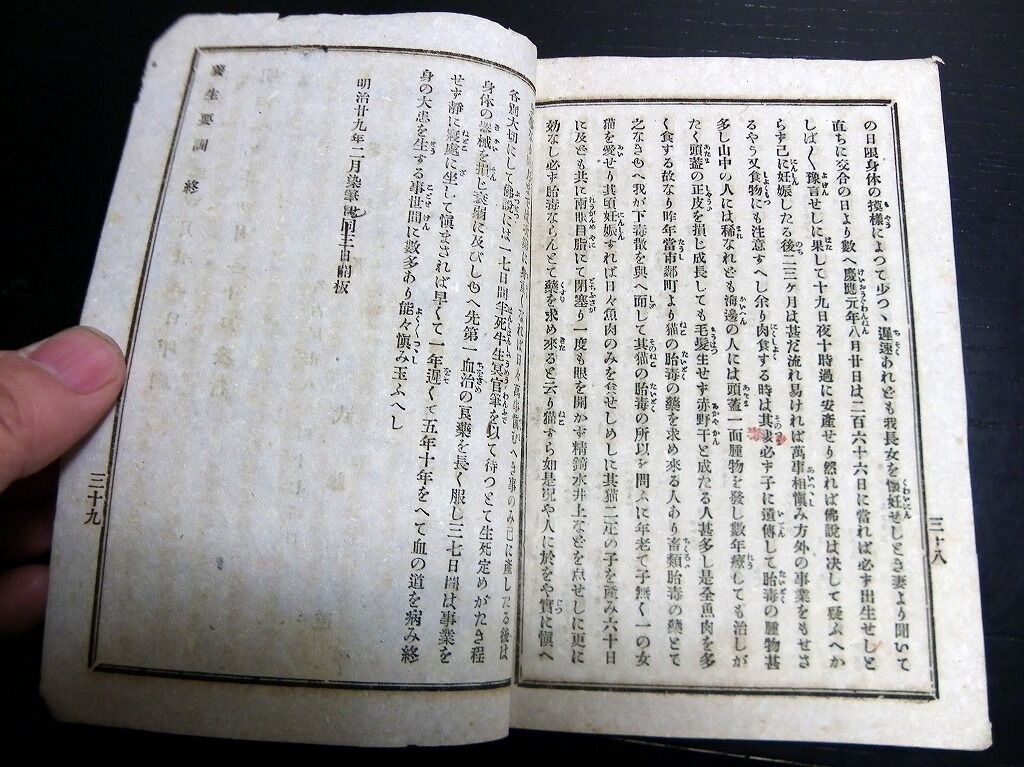 の日限身体の摸樣によつて少つゝ遲速あれども我長女を懷妊せしとき妻より聞いて
直ちに交合の日より數へ慶應元年八月廿日は二百六十六日に當れば必す出生せしと
しば〱豫言せしに果して十九日夜十時過に安產せり然れば佛說は决して疑ふへか
らず已に妊娠したる後二三ヶ月は甚だ流れ易ければ萬事相愼み方外の事業をもせさ
るやう又食物にも注意すへし余り肉食する時は其必す子に遺傳して胎毒の腫物甚
多し山中の人には稀なれども海邊の人には頭蓋一面腫物を發し數年療しても治しが
たく頭蓋の正皮を損じ成長しても毛髮生せず赤野干と成たる人甚多し是全魚肉を多
く食する故なり昨年當市鄰町より猫の胎毒の藥を求め來る人あり畜類胎毒の藥とて
之なきゆへ我が下毒散を與へ而して其猫の胎毒の所以を問ふに年老て子無く一の女
猫を愛せり其頃妊娠すれば日々魚肉のみを食せしめしに其猫二疋の子を產み六十日
に及ぶも共に兩眼目脂にて閉塞り一度も眼を開かず精錡水井上などを点せしに更に
効なし必ず胎毒ならんとて藥を求め來ると云り猫すら如是况や人に於をや實に愼へ
三十八
各別大切にして佛說には一七日間半死半生冥官筆を以て待つとて生死定めがたき程
身体の器械を損じ衰弱に及びしゆへ先第一血治の良藥を長く服し三七日間は事業を
せず靜に寢處に坐して愼まされば早くて一年遲くて五年十年をへて血の道を病み終
身の大患を生する事世間に數多あり能々愼み玉ふへし
明治廿九年二月染筆同三月開板
養生要訓 終
三十九